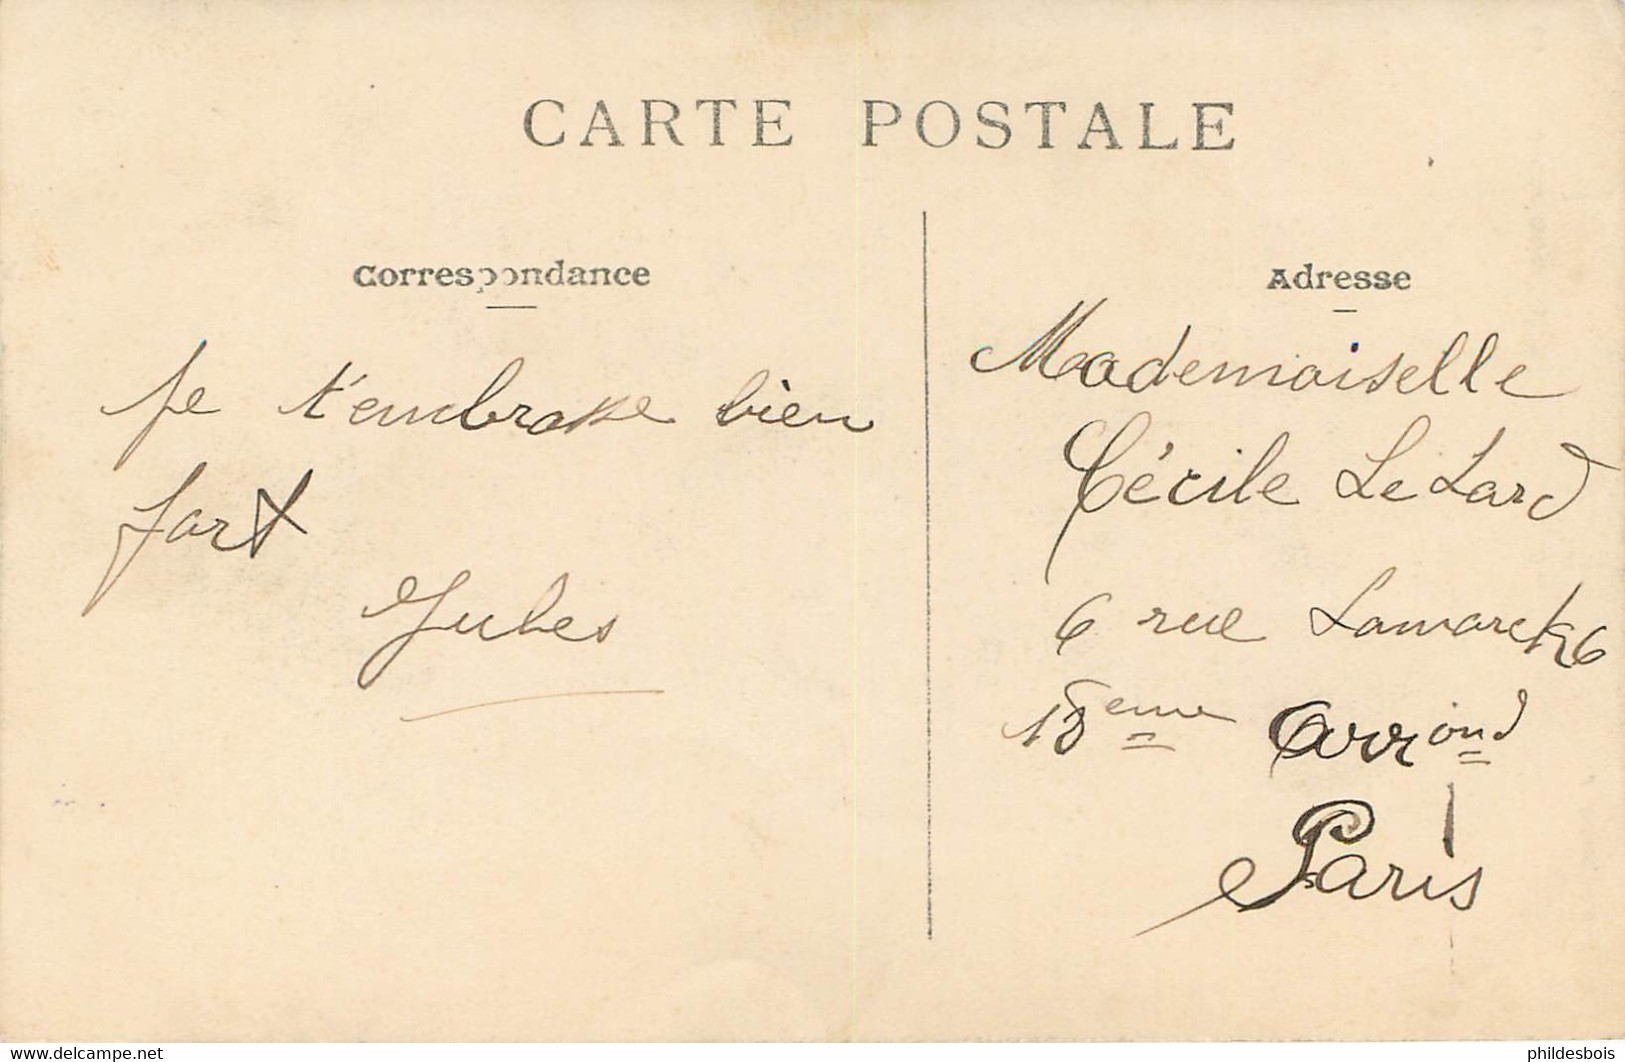 CARTE POSTALE
Correspondance
Je t'embrasse bien
fort
Jules
Adresse
Mademoiselle
Cécile Le Lard
6 rue Lamarck 6
18eme Arrond
Paris
www.delcampe.net
phildesbois